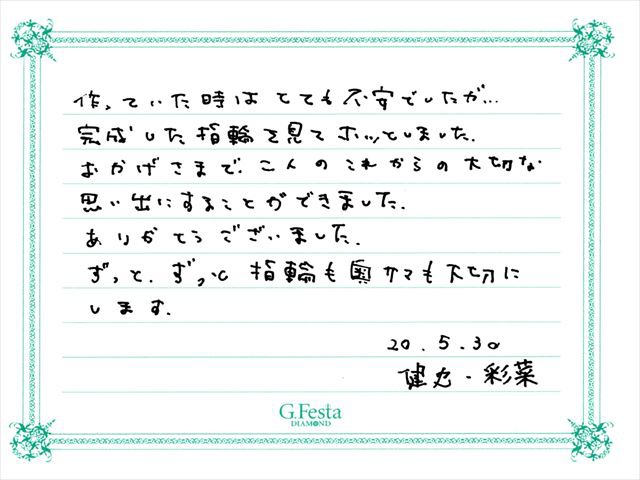 作っていた時はとても不安でしたが…
完成した指輪を見てホッとしました.
おかげさまで.二人のこれからの大切な
思い出にすることができました.
ありがとうございました.
ずっと.ずっと指輪も奥サマも大切に
します.
20.5.30
健・彩菜
G.Festa
DIAMOND